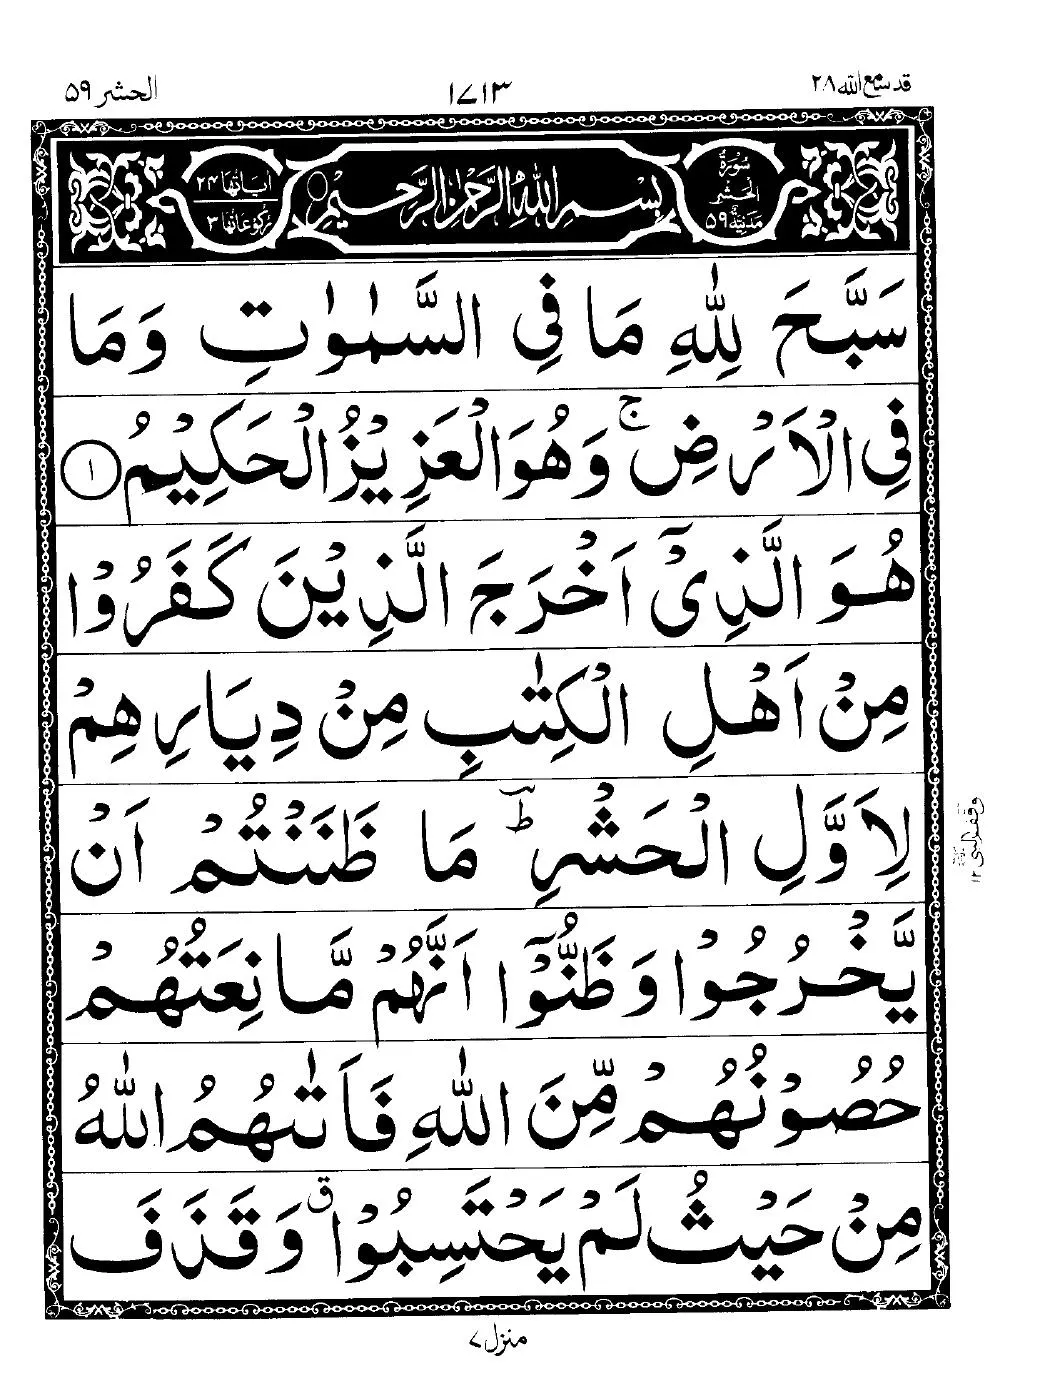 قد سمع الله ٢٨
١٧١٣
الحشر ٥٩
سُوْرَةُ
الْحَشْرِ
مَدَنِيَّةٌ ٥٩
بِسْمِ اللّٰهِ الرَّحْمٰنِ الرَّحِيْمِ
اٰيَاتُهَا ٢٤
رُكُوْعَاتُهَا ٣
سَبَّحَ لِلّٰهِ مَا فِي السَّمٰوٰتِ وَمَا
فِي الْاَرْضِ ۚ وَهُوَ الْعَزِيْزُ الْحَكِيْمُ ١
هُوَ الَّذِيْۤ اَخْرَجَ الَّذِيْنَ كَفَرُوْا
مِنْ اَهْلِ الْكِتٰبِ مِنْ دِيَارِهِمْ
لِاَوَّلِ الْحَشْرِ ؕ مَا ظَنَنْتُمْ اَنْ
يَّخْرُجُوْا وَظَنُّوْۤا اَنَّهُمْ مَّانِعَتُهُمْ
حُصُوْنُهُمْ مِّنَ اللّٰهِ فَاَتٰىهُمُ اللّٰهُ
مِنْ حَيْثُ لَمْ يَحْتَسِبُوْا ۗ وَقَذَفَ
منزل ٧